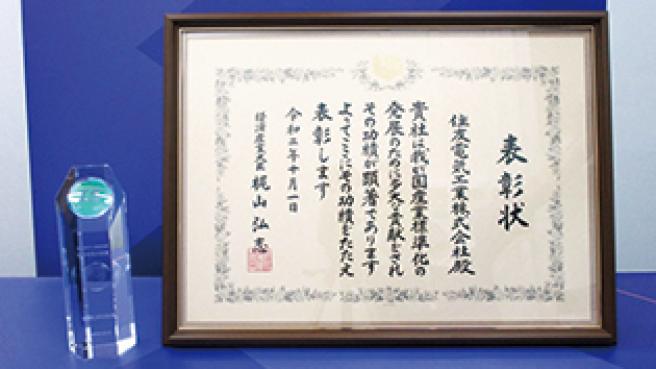 表彰状
住友電気工業株式会社殿
貴社は我が国産業標準化の
発展のために多大な貢献をされ
その功績が顕著であります
よってここにその功績をたたえ
表彰します
令和 年十月一日
経済産業大臣 梶山弘志